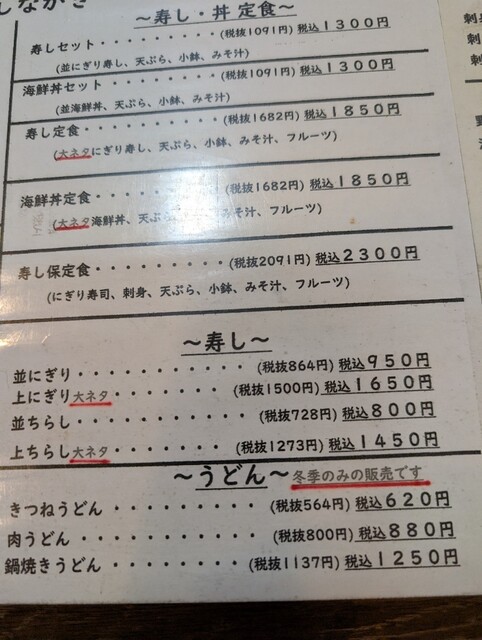 しながき
～寿し・丼 定食～
寿しセット・・・・・・・・・(税抜1091円) 税込1300円
(並にぎり寿し、天ぷら、小鉢、みそ汁)
海鮮丼セット・・・・・・・・(税抜1091円) 税込1300円
(並海鮮丼、天ぷら、小鉢、みそ汁)
寿し定食・・・・・・・・・・(税抜1682円) 税込1850円
(大ネタにぎり寿し、天ぷら、小鉢、みそ汁、フルーツ)
海鮮丼定食・・・・・・・・(税抜1682円) 税込1850円
(大ネタ海鮮丼、天ぷら、みそ汁、フルーツ)
寿し保定食・・・・・・・・・(税抜2091円) 税込2300円
(にぎり寿司、刺身、天ぷら、小鉢、みそ汁、フルーツ)
～寿し～
並にぎり・・・・・・・・・・・(税抜864円) 税込950円
上にぎり大ネタ・・・・・・・・(税抜1500円) 税込1650円
並ちらし・・・・・・・・・・・(税抜728円) 税込800円
上ちらし大ネタ・・・・・・・(税抜1273円) 税込1450円
～うどん～冬季のみの販売です
きつねうどん・・・・・・・・・(税抜564円) 税込620円
肉うどん・・・・・・・・・・・(税抜800円) 税込880円
鍋焼きうどん・・・・・・・・・(税抜1137円) 税込1250円
刺身
刺
刺